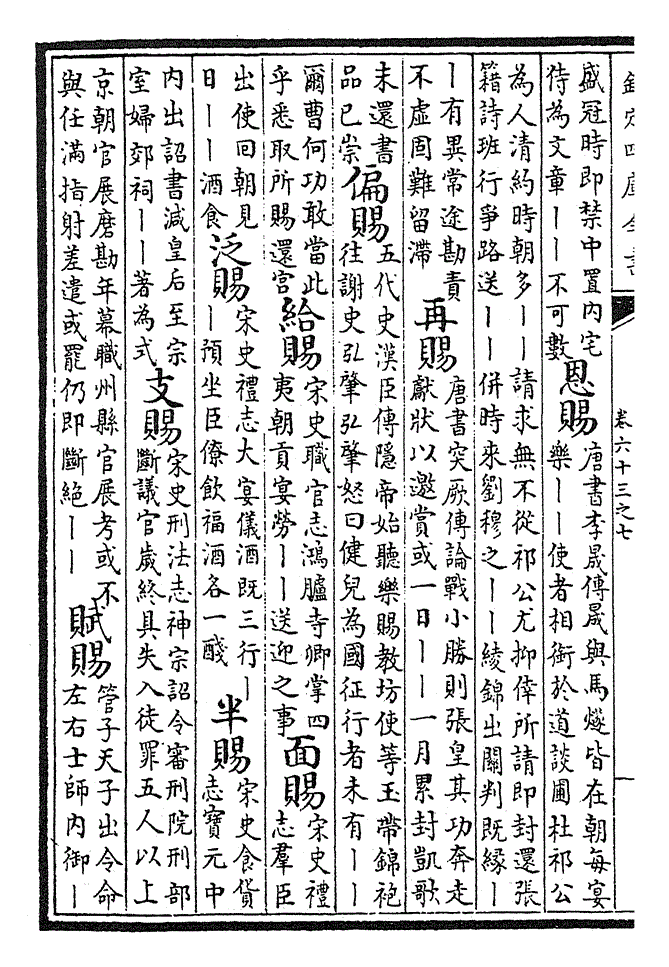 欽定四庫全書
卷六十三之七
一
盛冠時即禁中置内宅
待為文章丨丨不可數
恩賜
唐書李晟傳晟與馬燧皆在朝每宴
樂丨丨使者相銜於道談圃杜祁公
為人清約時朝多丨丨請求無不從祁公尤抑倖所請即封還張
籍詩班行爭路送丨丨併時來劉穆之丨丨綾錦出關判既緣丨
丨有異常途勘責
不虛囿難留滯
再賜
唐書突厥傳論戰小勝則張皇其功奔走
獻狀以邀賞或一日丨丨一月累封凱歌
未還書
品已崇
偏賜
五代史漢臣傳隱帝始聽樂賜教坊使等玉帶錦袍
往謝史弘肇弘肇怒曰健兒為國征行者未有丨丨
爾曹何功敢當此
乎悉取所賜還宫
給賜
宋史職官志鴻臚寺卿掌四
夷朝貢宴勞丨丨送迎之事
面賜
宋史禮
志羣臣
出使回朝見
日丨丨酒食
泛賜
宋史禮志大宴儀酒既三行丨
丨預坐臣僚飲福酒各一醆
半賜
宋史食貨
志寶元中
内出詔書減皇后至宗
室婦郊祠丨丨著為式
支賜
宋史刑法志神宗詔令審刑院刑部
斷議官歲終具失入徒罪五人以上
京朝官展磨勘年幕職州縣官展考或不
與任滿指射差遣或罷仍即斷絶丨丨
賦賜
管子天子出令命
左右士師内御丨